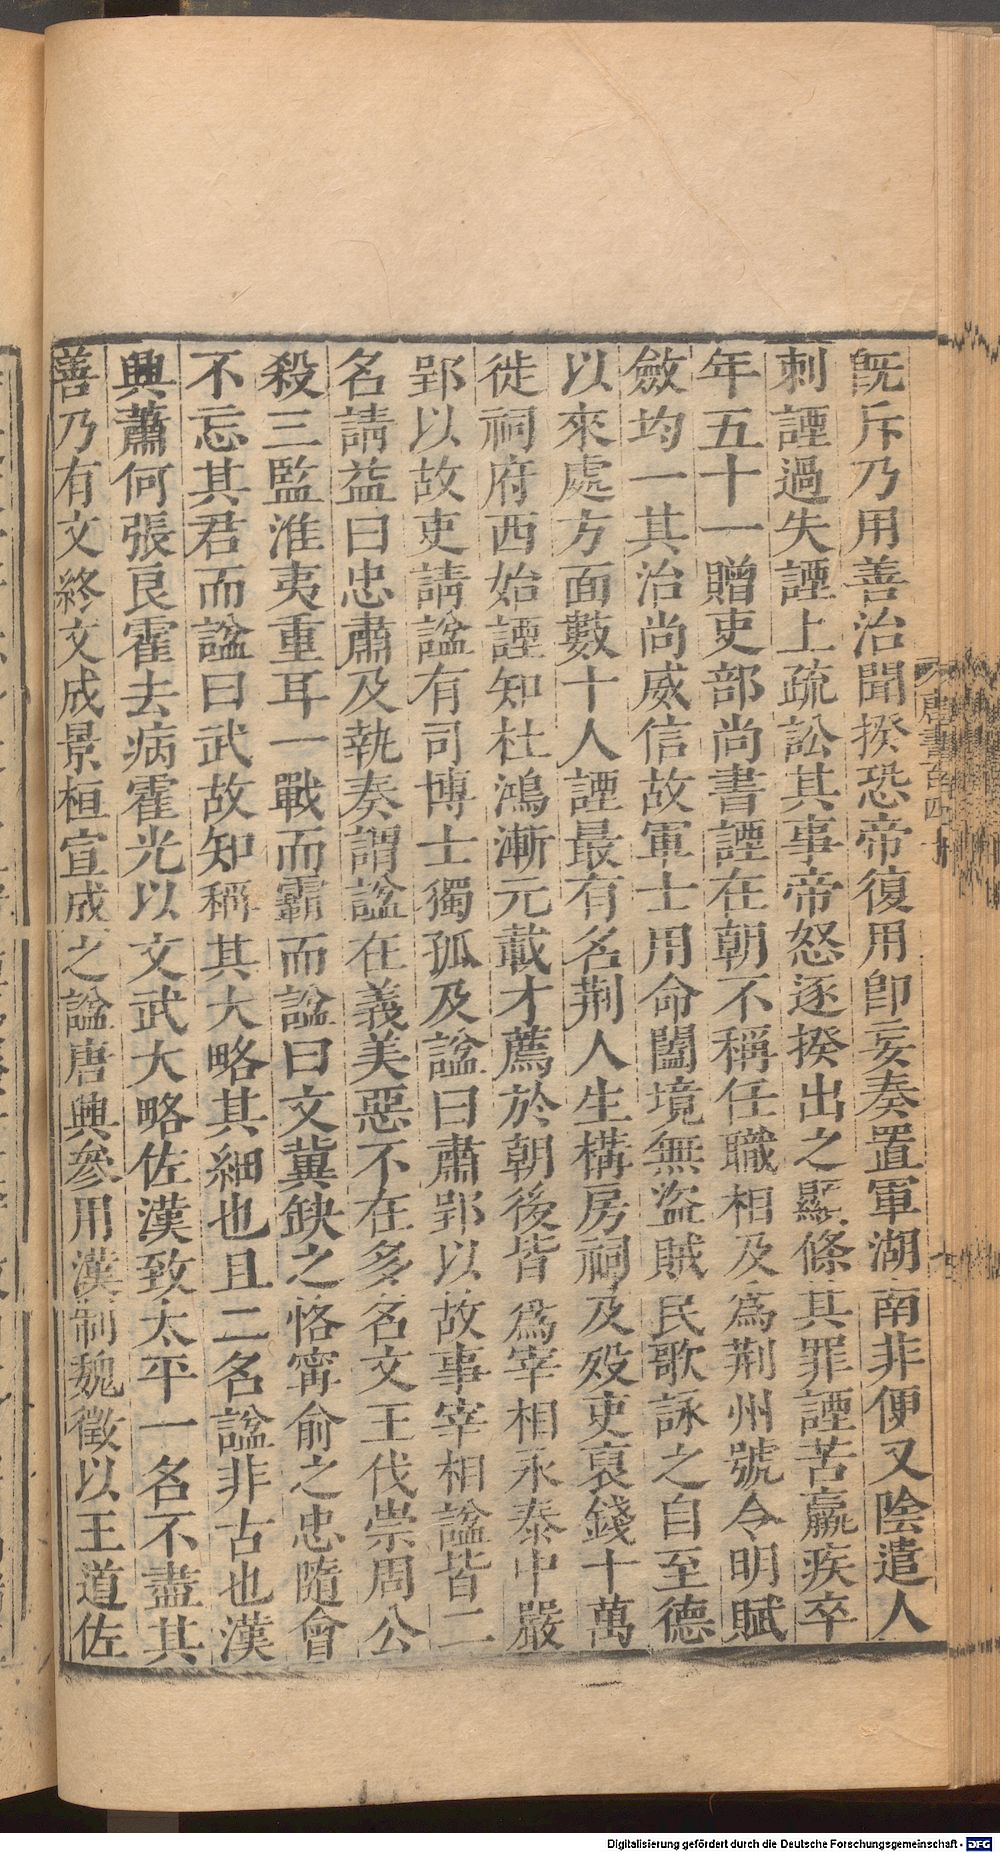 旣斥乃用善治聞揆恐帝復用卽妄奏置軍湖南非便又陰遣人
刺諲過失諲上疏訟其事帝怒逐揆出之顯條其罪諲苦羸疾卒
年五十一贈吏部尚書諲在朝不稱任職相及爲荆州號令明賦
斂均一其治尚威信故軍士用命闔境無盜賊民歌詠之自至德
以來處方面數十人諲最有名荆人生構房祠及歿吏裒錢十萬
徙祠府西始諲知杜鴻漸元載才薦於朝後皆爲宰相永泰中嚴
郢以故吏請諡有司博士獨孤及諡曰肅郢以故事宰相諡皆二
名請益曰忠肅及執奏謂諡在義美惡不在多名文王伐崇周公
殺三監淮夷重耳一戰而霸而諡曰文冀缺之恪甯俞之忠隨會
不忘其君而諡曰武故知稱其大略其細也且二名諡非古也漢
興蕭何張良霍去病霍光以文武大略佐漢致太平一名不盡其
善乃有文終文成景桓宣成之諡唐興參用漢制魏徵以王道佐
唐書百四十
Digitalisierung gefördert durch die Deutsche Forschungsgemeinschaft - DFG